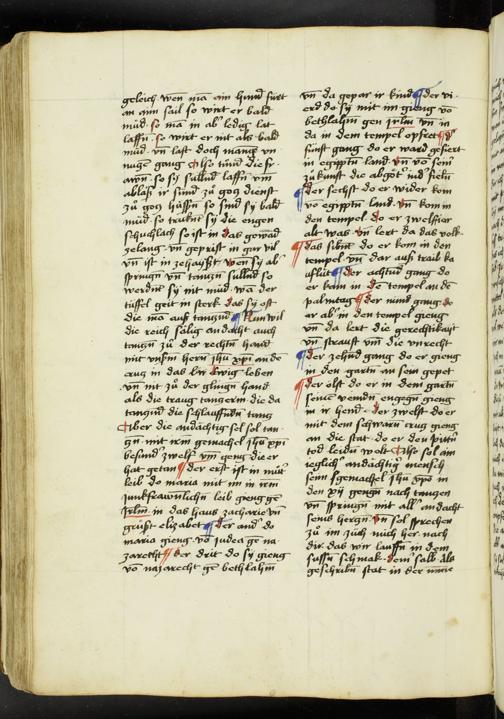 geleich wen mā ain hund furt
an aim sail so wirt er bald
müd so mā in ab ledig lat
lauffn so wirt er nit als bald
müd vn̄ last doch mangn vn
nugn gang Also tund die fr
awn so sy sullnd lauffn vm
ablaß ir sund zů gotz dienst
zů gotz hußn so sind sy bald
müd so truknt sy die engen
schuchlach so ist in das gewād
zelang vn̄ geprist in gar vil
vn̄ ist in zehaußt wen sy ab
sprugn vn̄ tanzn sullnd so
werdnt sy nit müd wā der
tüffel geit in sterk das sy oft
die mā auß tanznd Nun wil
die reich sälig andacht auch
tanzn zů der rechtn hand
mit vnsm hern jhu xpi an de
crug in das ewig leben
vn̄ nit zů der glingn hand
als die traug tangerin die da
tangnd die schlauffndn tang
Aber die andächtig sel sol tan
zn mit irm gemachel jhu xpi
besund zwelf vm geng die er
hat getan der erst ist in můt
leib do maria mit im in irm
junkfrawlichn leib gieng ge
jrlm in das haus zacharie vn̄
grüßt elizabet der and do
maria gieng vō judea ge na
zarecht der drit do sy gieng
vō nazarecht ge bethlahm
vn̄ da gepar ir kind der vi
erd do sy mit im gieng vō
bethlahm gen jrlm vn̄ in
da in dem tempel opfret d
fünft gang do er ward gefiert
in egiptn land vn̄ vō seim
zůkunft die abgöt nid fieln
der sechst do er wider kom
vō egiptn land vn̄ kom in
den tempel do er zwelfier
alt was vn̄ lert da das volk
das sibnt do er kom in den
tempel vn̄ dar auß traib ka
uflüt der achtund gang do
er kom in de tempel an de
palmtag der nund gang do
er ab in den tempel gieng
vn̄ da lert die gerechtikayt
vn̄ straufft vm̄ die vnrecht
der zehnd gang do er gieng
in den gartn an sein gepet
der olft do er in dem gartn
seinen veindn engegn gieng
in ir hend der zwelft do er
mit dem schwarn crug gieng
an die stat do er den pittn
tod leidn wolt Also sol am
ieglich andächtig mensch
seim gemachel jhu xpo in
den xij gengn nach tanzen
vn̄ springn mit all andacht
seins herzn vn̄ sol sprechen
zů im züch mich her nach
dir das wir lauffn in dem
süssn schmak deim salb als
geschribn stat in der